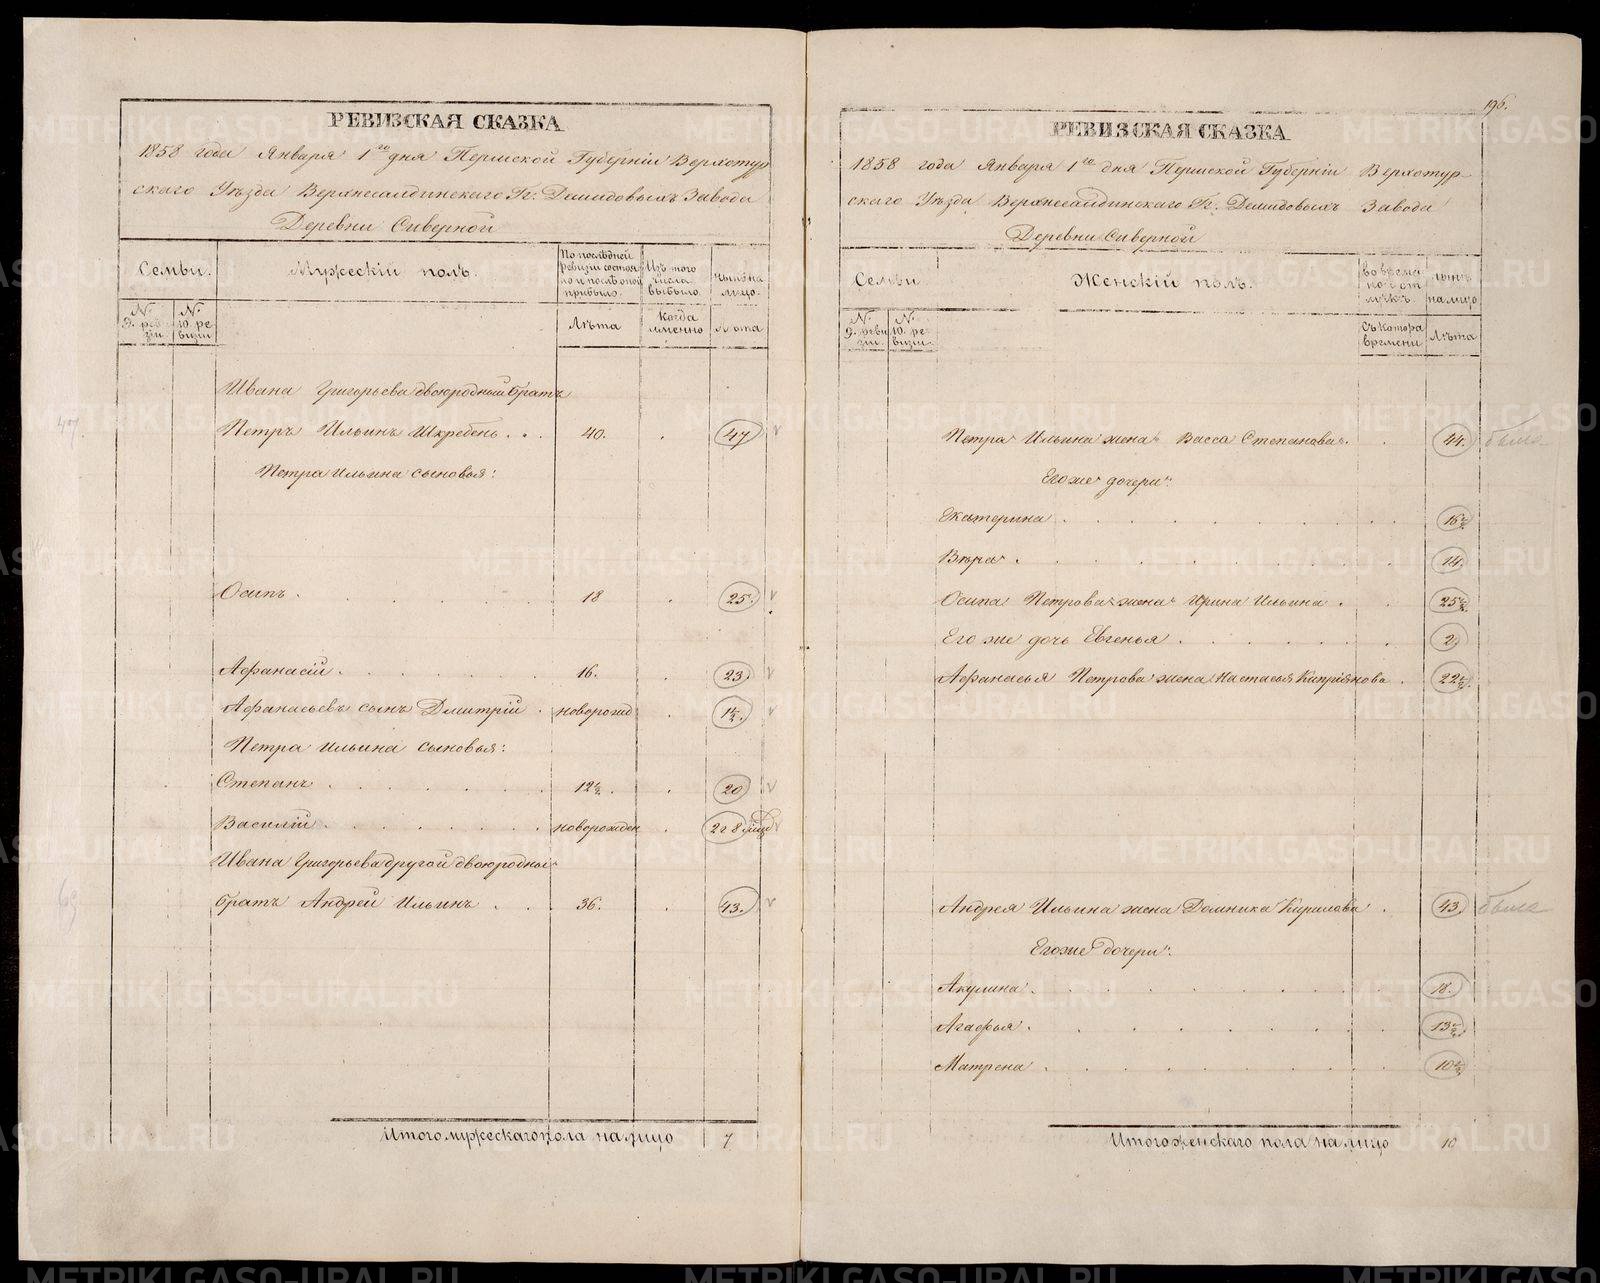 РЕВИЗСКАЯ СКАЗКА
1858 года Января 1го дня Пермской Губерніи Верхотур
скаго Уѣзда Верхнесалдинскаго Гг. Демидовыхъ Завода
Деревни Сиверной
Семьи.
Мужескій полъ.
По послѣдней ревизіи состояло и послѣ оной прибыло.
Изъ того числа выбыло.
нынѣ на лицо.
№ 9. ревизіи
№ 10. ревизіи
Лѣта
Когда именно
Лѣта
Ивана Григорьева двоюродный братъ
47.
Петръ Ильинъ Шкребень . . . 40. . 47 v
Петра Ильина сыновья:
Осипъ. . . . . 18 . 25. v
Афанасій. . . . . 16. . 23. v
Афанасьевъ сынъ Дмитрій . новорожд . 1½. v
Петра Ильина сыновья:
Степанъ . . . . . 12½. . 20 v
Василій . . . . . новорожден . 2г 8 мцв v
Ивана Григорьева другой двоюродны
69
братъ Андрей Ильинъ . . . 36. . 43. v
Итого мужескаго пола на лицо 7
196.
РЕВИЗСКАЯ СКАЗКА
1858 года Января 1го дня Пермской Губерніи Верхотур-
скаго Уѣзда Верхнесалдинскаго Гг. Демидовыхъ Завода
Деревни Сиверной
Семьи
Женскій полъ.
во временной отлучкѣ.
нынѣ на лицо
№ 9. ревизіи.
№ 10. ревизіи.
Съ котора времени
Лѣта
Петра Ильина жена Васса Степанова. . 44. была
Его же дочери:
Екатерина . . . . . 16½
Вѣра . . . . . 14.
Осипа Петрова жена Ирина Ильина . . 25½
Его же дочь Евгенья . . . . . 2
Афанасья Петрова жена Настасья Кипріянова . 22½.
Андрея Ильина жена Домника Кирилова . 43. была
Его же дочери:
Акулина . . . . . 18.
Агафья . . . . . 13½.
Матрена . . . . . 10½
Итого женскаго пола на лицо 10
METRIKI.GASO-URAL.RU